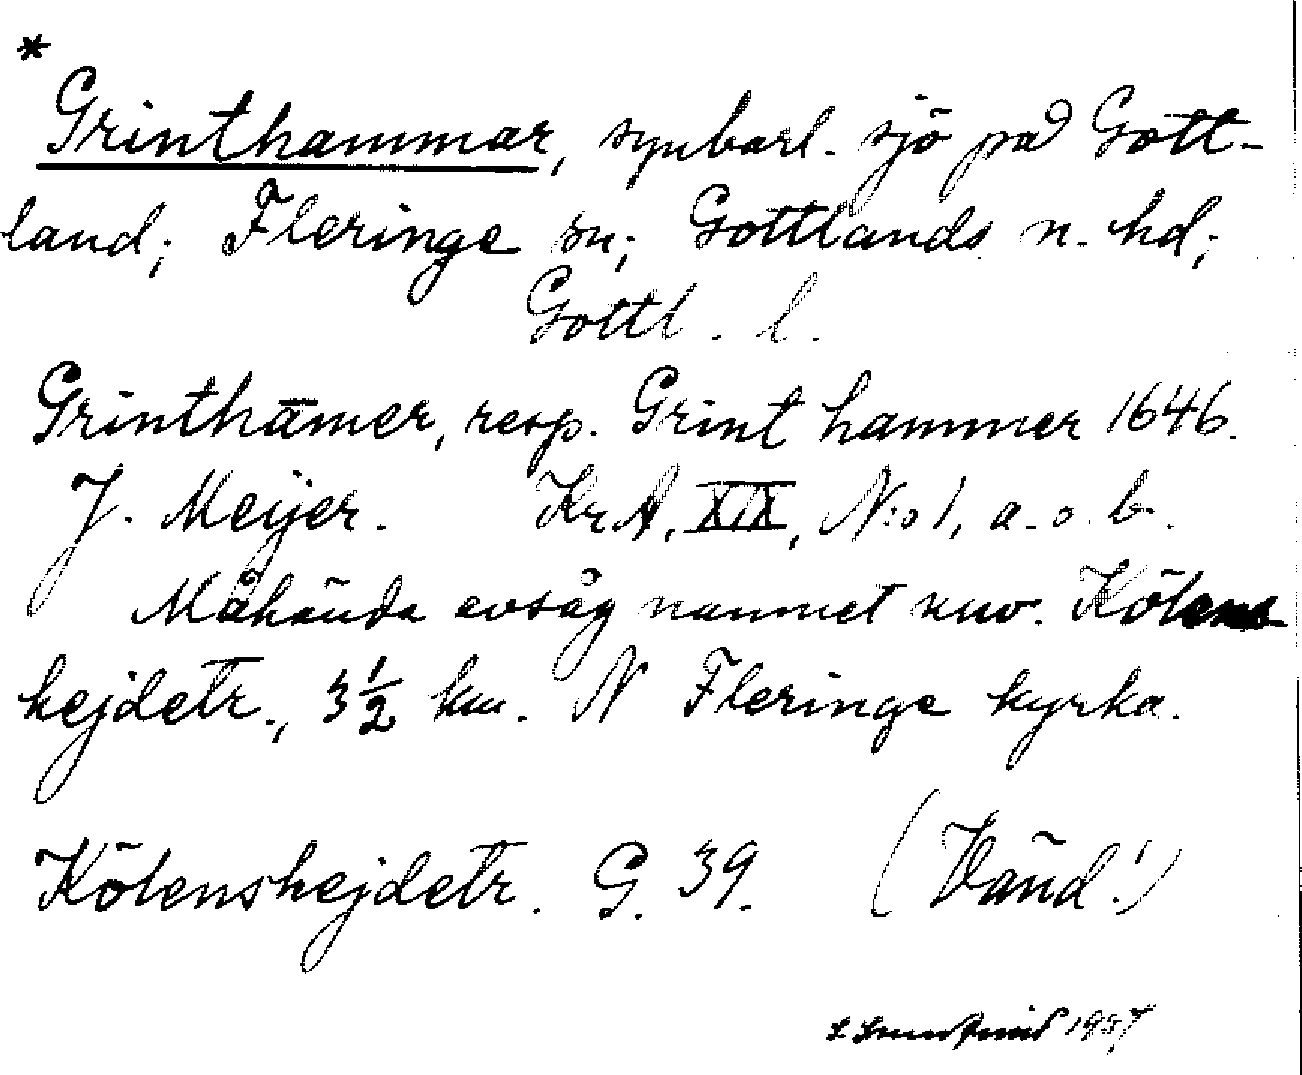 *
Grinthammar, synbarl. sjö på Gott-
land; Fleringe sn; Gottlands n. hd;
Gottl. l.
Grintham̄er, resp. Grint hammer 1646.
J. Meijer. KrA, XIX, N:o 1, a. o. b.
Måhända avsåg namnet nuv. Kölens
hejdetr., 3½ km. N Fleringe kyrka.
Kölenshejdetr. G. 39. (Vänd!)
1937